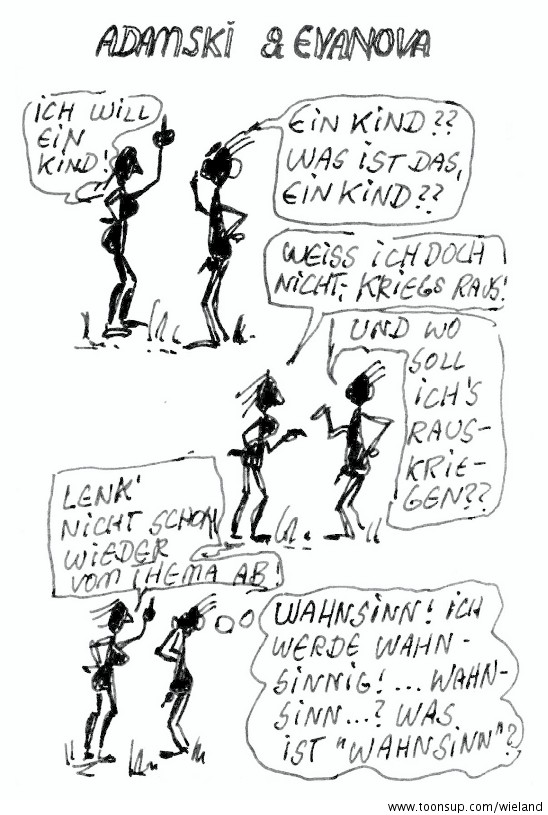 ADAMSKI & EVANOVA
ICH WILL
EIN
KIND!
EIN KIND??
WAS IST DAS,
EIN KIND??
WEISS ICH DOCH
NICHT, KRIEGS RAUS!
UND WO
SOLL
ICH'S
RAUS-
KRIE-
GEN??
LENK'
NICHT SCHON
WIEDER
VOM THEMA AB!
WAHNSINN! ICH
WERDE WAHN-
SINNIG!... WAHN-
SINN...? WAS
IST "WAHNSINN"?
www.toonsup.com/wieland